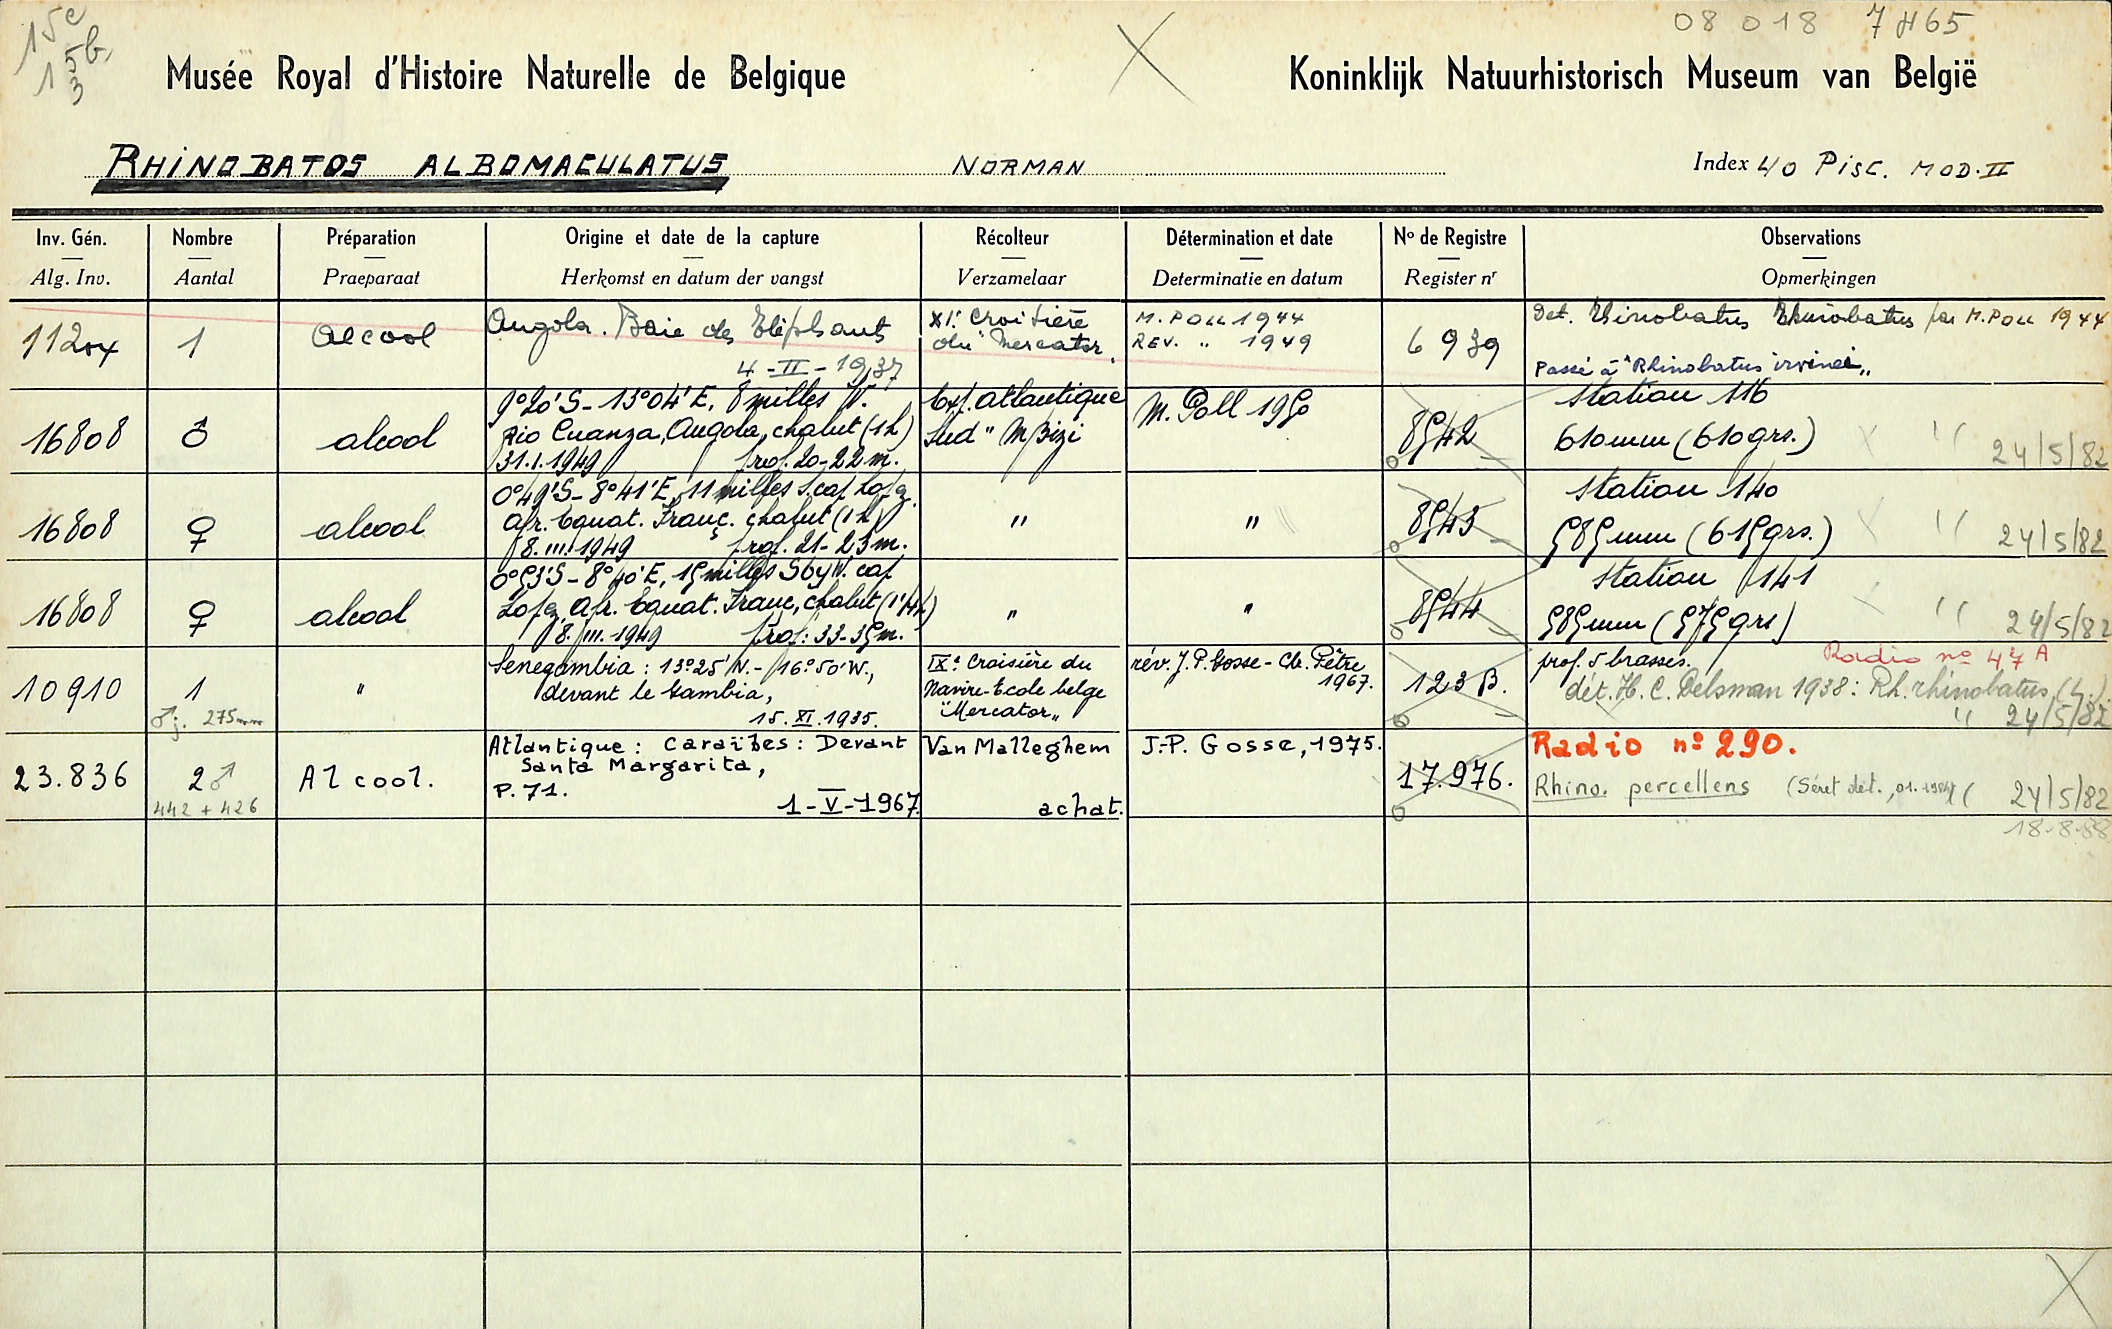 15c
5b
1 3
08 018 7H65
Musée Royal d'Histoire Naturelle de Belgique
Koninklijk Natuurhistorisch Museum van België
RHINOBATOS ALBOMACULATUS NORMAN
Index 40 PISC. MOD. II
Inv. Gén. Nombre Préparation Origine et date de la capture Récolteur Détermination et date No de Registre Observations
Alg. Inv. Aantal Praeparaat Herkomst en datum der vangst Verzamelaar Determinatie en datum Register nr Opmerkingen
11204 1 alcool
Angola. Baie des Eléphants
4-II-1937
XIe Croisière
du "Mercator"
M. POLL 1944
REV. " 1949
6939
Det. Rhinobatus Rhinobatus par M. POLL 1944
Passé à "Rhinobatus irvinei"
16808 ♂ alcool
9°20'S-13°04'E, 8 milles W.
Rio Cuanza, Angola, chalut (1h)
31.1.1949 prof. 20-22m.
Exp. Atlantique
Sud "M'Bizi
M. Poll 1950
8542
Station 116
610mm (610grs.)
" 24/5/82
16808 ♀ alcool
0°49'S-8°41'E, 11 milles S. cap Lopez.
Afr. Equat. Franç. chalut (1h)
8.III.1949 prof. 21-23m.
"
"
8543
Station 140
585mm (615grs.)
" 24/5/82
16808 ♀ alcool
0°53'S-8°40'E, 15 milles SbyW. cap
Lopez, Afr. Equat. Franç, chalut (1'14h)
8.III.1949 prof: 33-35m.
"
"
8544
Station 141
585mm (575grs)
" 24/5/82
10910 1 "
♂ j. 275mm
Senegambia: 13°25'N.-16°50'W.,
devant le Gambia,
15.XI.1935.
IXe Croisière du
Navire-Ecole belge
"Mercator"
rév. J.P. Gosse-Ch. Pêtre
1967.
123 B.
prof. 5 brasses. Radio no 47A
dét. H.C. Delsman 1938: Rh. rhinobatus (L.)
" 24/5/82
23.836 2♂ Alcool.
442 + 426
Atlantique: Caraïbes: Devant
Santa Margarita,
P.71.
1-V-1967
Van Malleghem
achat.
J.-P. Gosse, 1975.
17.976.
Radio no 290.
Rhino. percellens (Séret dét., 01.1984) " 24/5/82
18-8-88